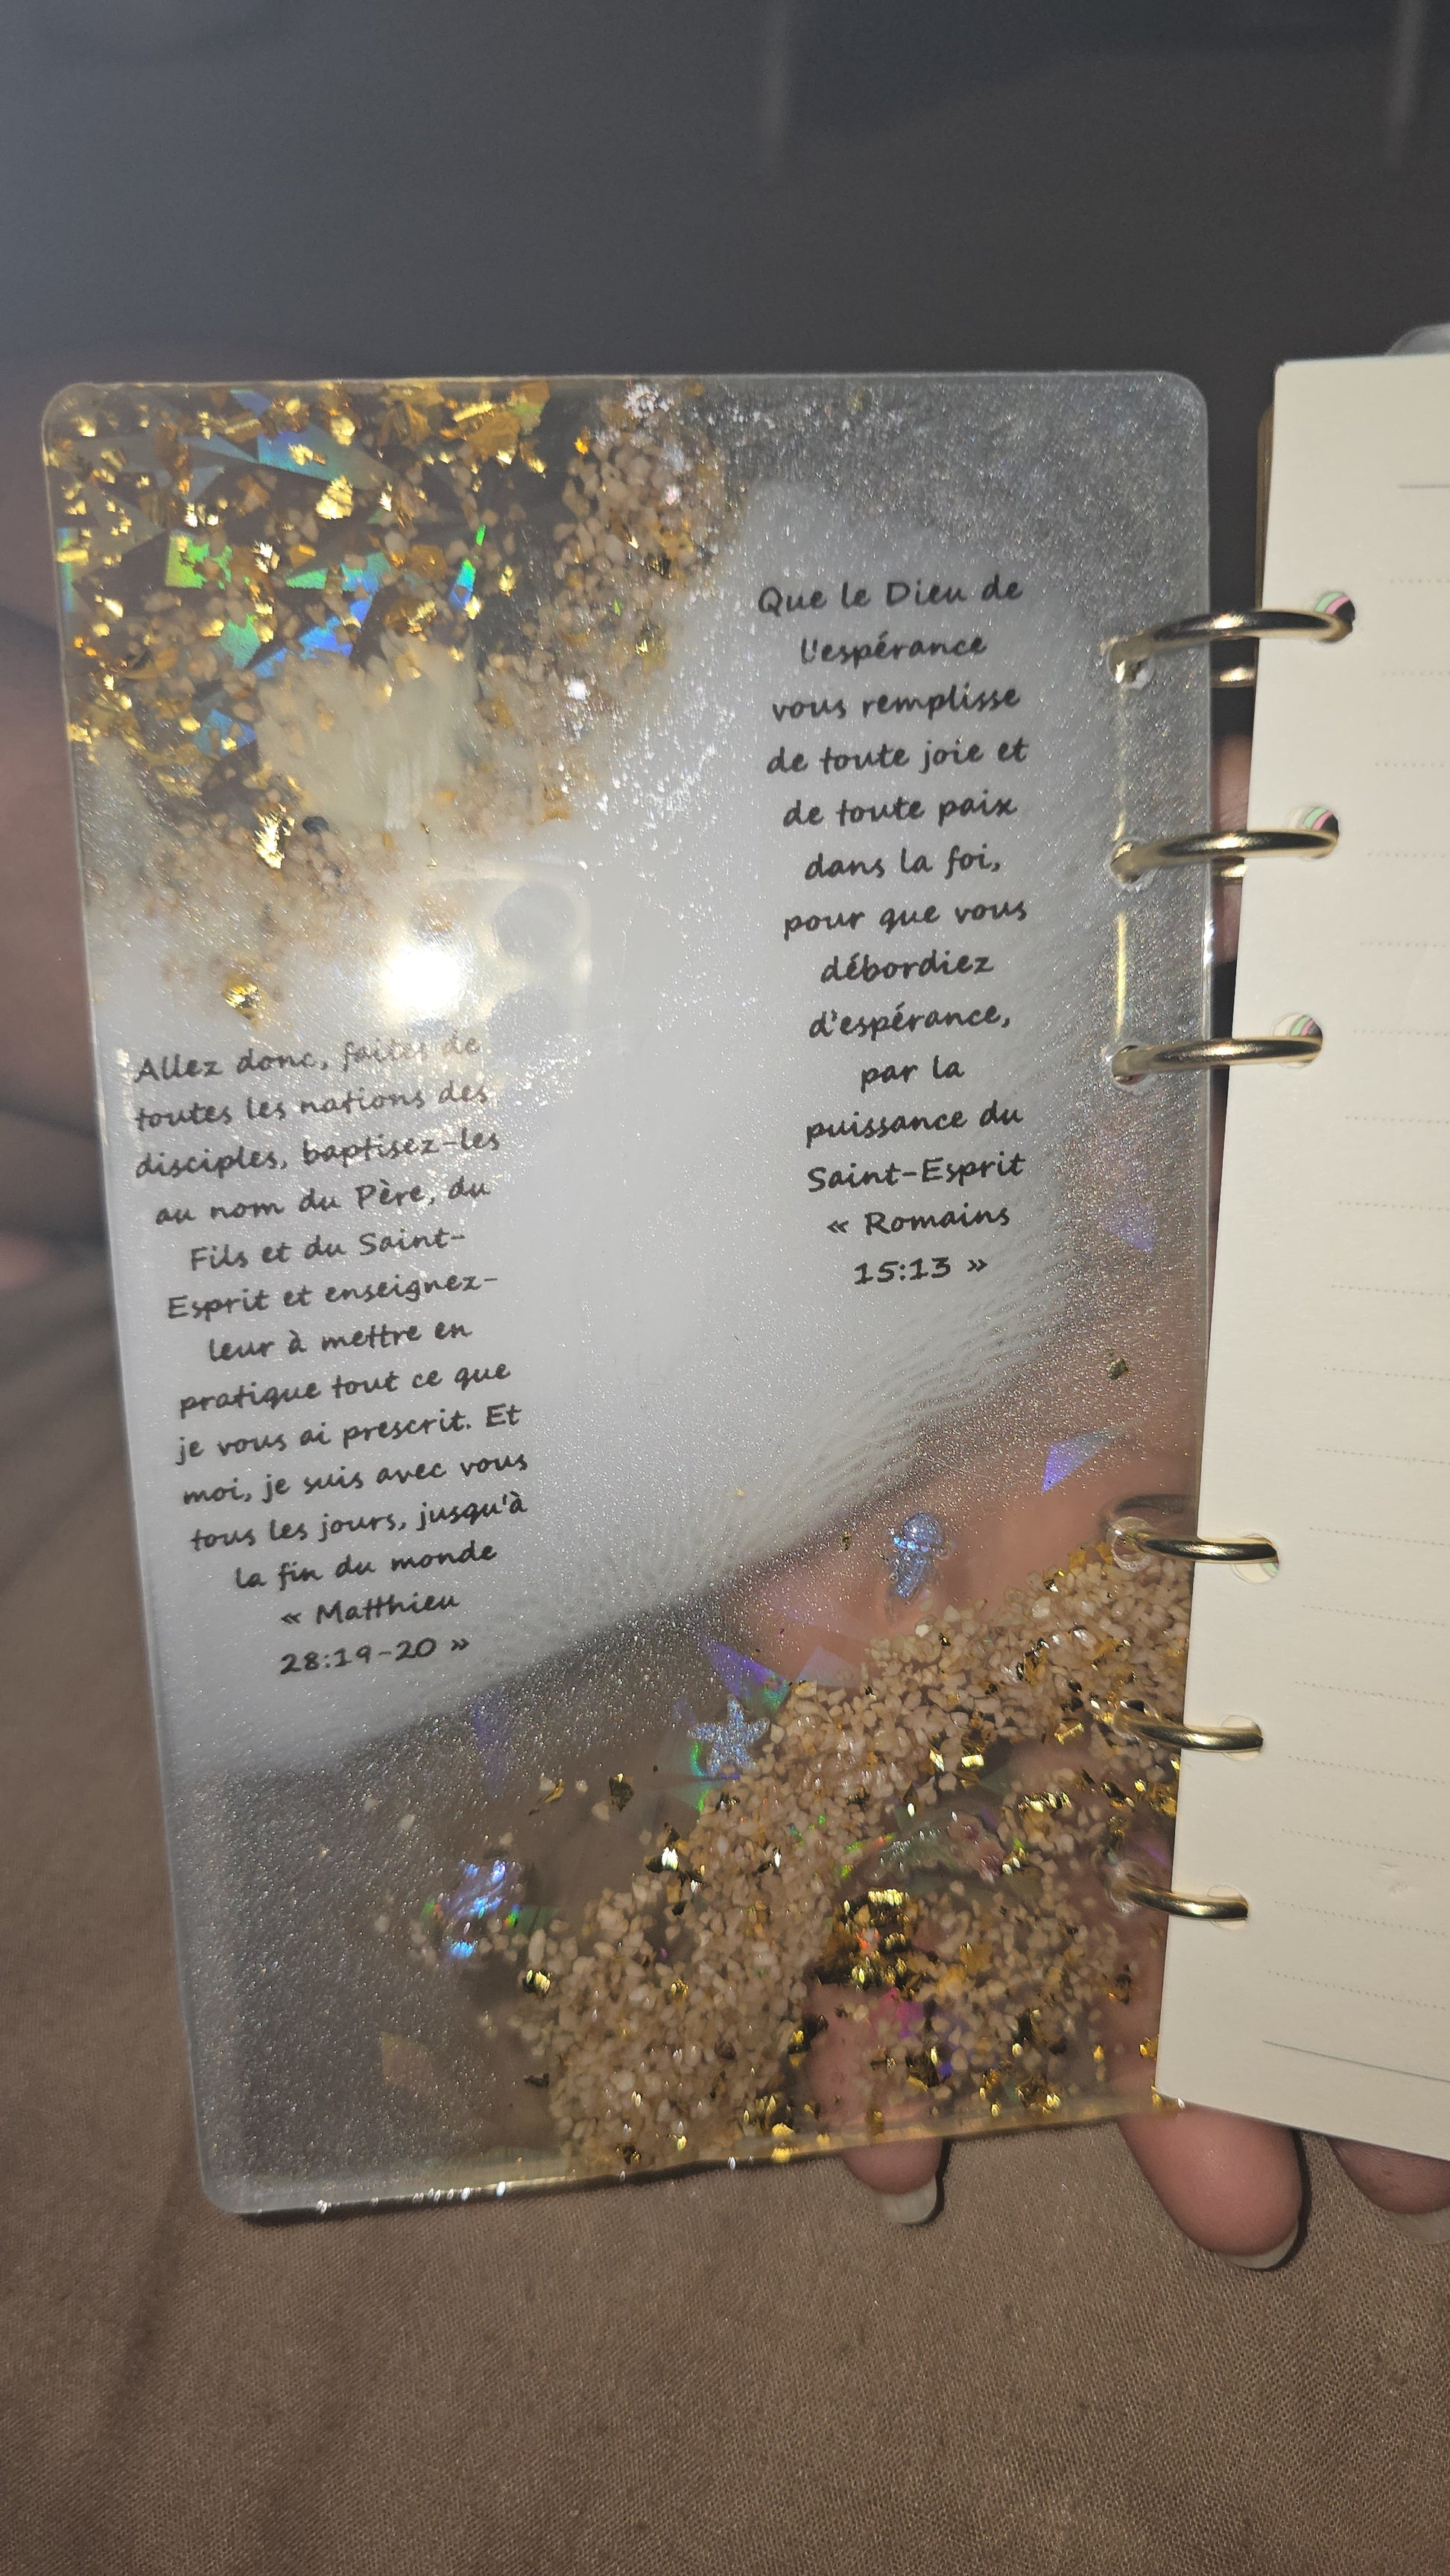 Que le Dieu de
l'espérance
vous remplisse
de toute joie et
de toute paix
dans la foi,
pour que vous
débordiez
d'espérance,
par la
puissance du
Saint-Esprit
« Romains
15:13 »
Allez donc, faites de
toutes les nations des
disciples, baptisez-les
au nom du Père, du
Fils et du Saint-
Esprit et enseignez-
leur à mettre en
pratique tout ce que
je vous ai prescrit. Et
moi, je suis avec vous
tous les jours, jusqu'à
la fin du monde
« Matthieu
28:19-20 »